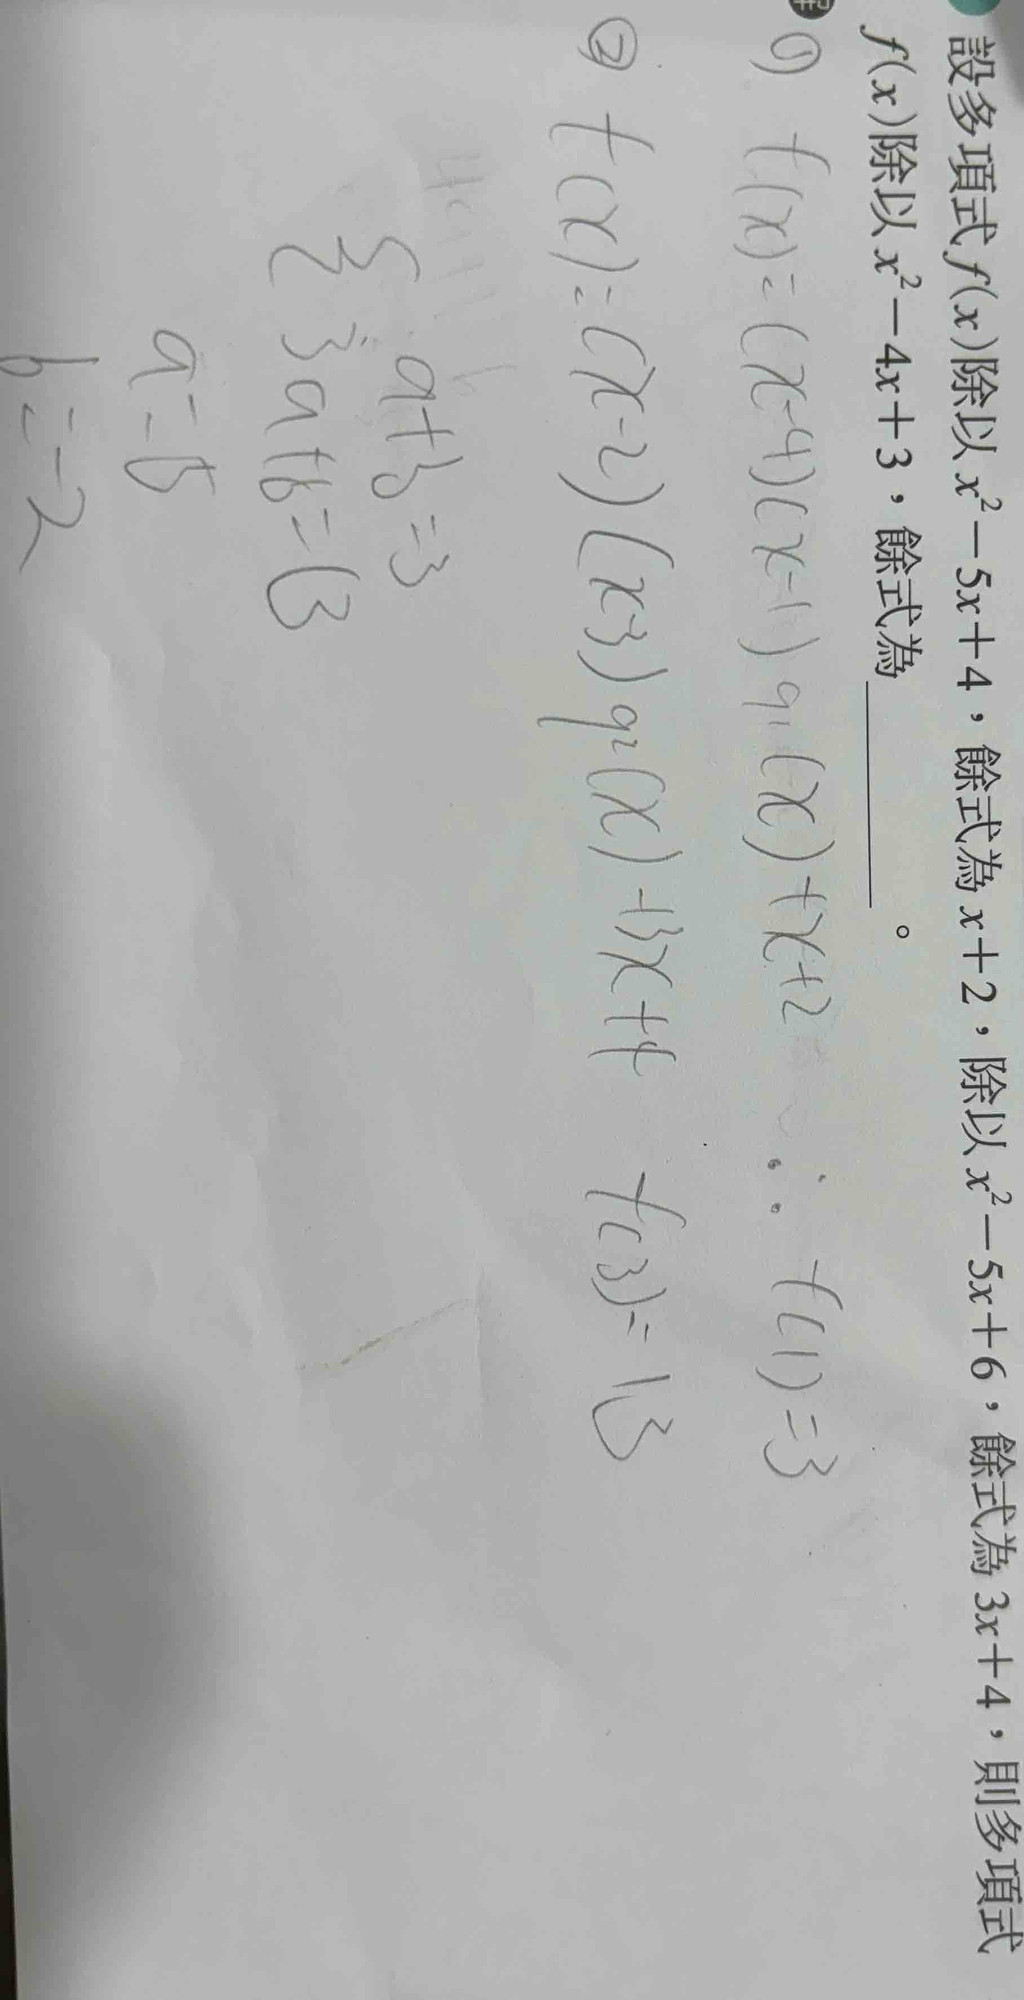 設多項式 f(x)除以 x²－5x＋4，餘式為 x＋2，除以 x²－5x＋6，餘式為 3x＋4，則多項式
f(x)除以 x²－4x＋3，餘式為＿＿＿＿。
① f(x)=(x-4)(x-1)q₁(x)+x+2 ∴ f(1)=3
② f(x)=(x-2)(x-3)q₂(x)+3x+4 f(3)=13
{ a+b=3
3a+b=13
a=5
b=-2